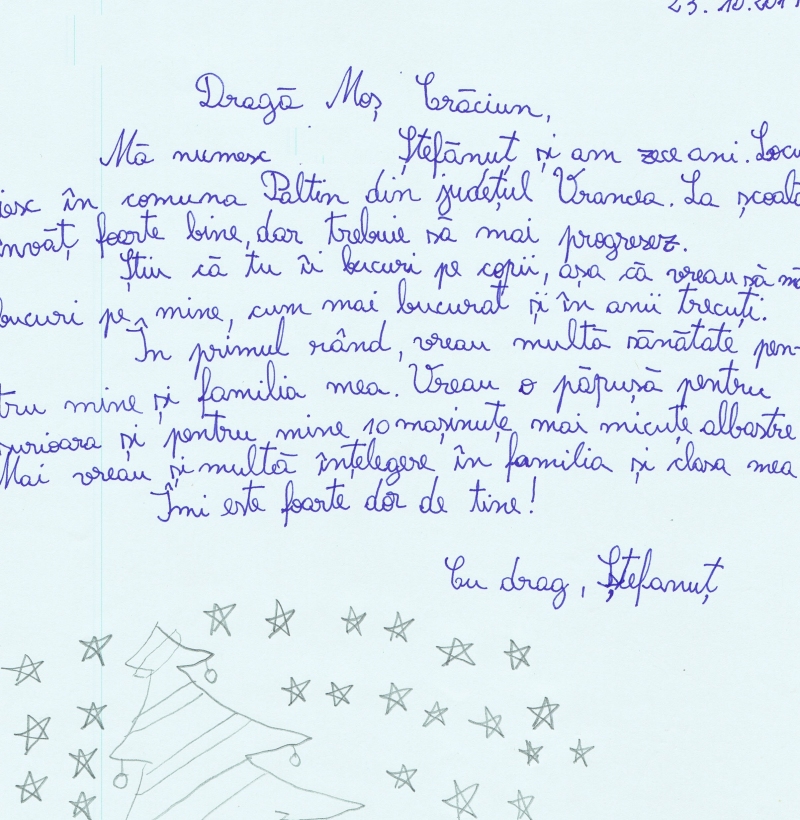 23.10.201
Dragă Moș Crăciun,
Mă numesc Ștefănuț și am zece ani. Locu
iesc în comuna Paltin din județul Vrancea. La școală
învăț foarte bine, dar trebuie să mai progresez.
Știu că tu îi bucuri pe copii, așa că vreau să mă
bucuri pe mine, cum mai bucurat și în anii trecuți.
În primul rând, vreau multă sănătate pen-
tru mine și familia mea. Vreau o păpușă pentru
surioara și pentru mine 10 mașinuțe mai micuțe albastre
Mai vreau și multă înțelegere în familia și clasa mea
Îmi este foarte dor de tine!
Cu drag, Ștefanuț